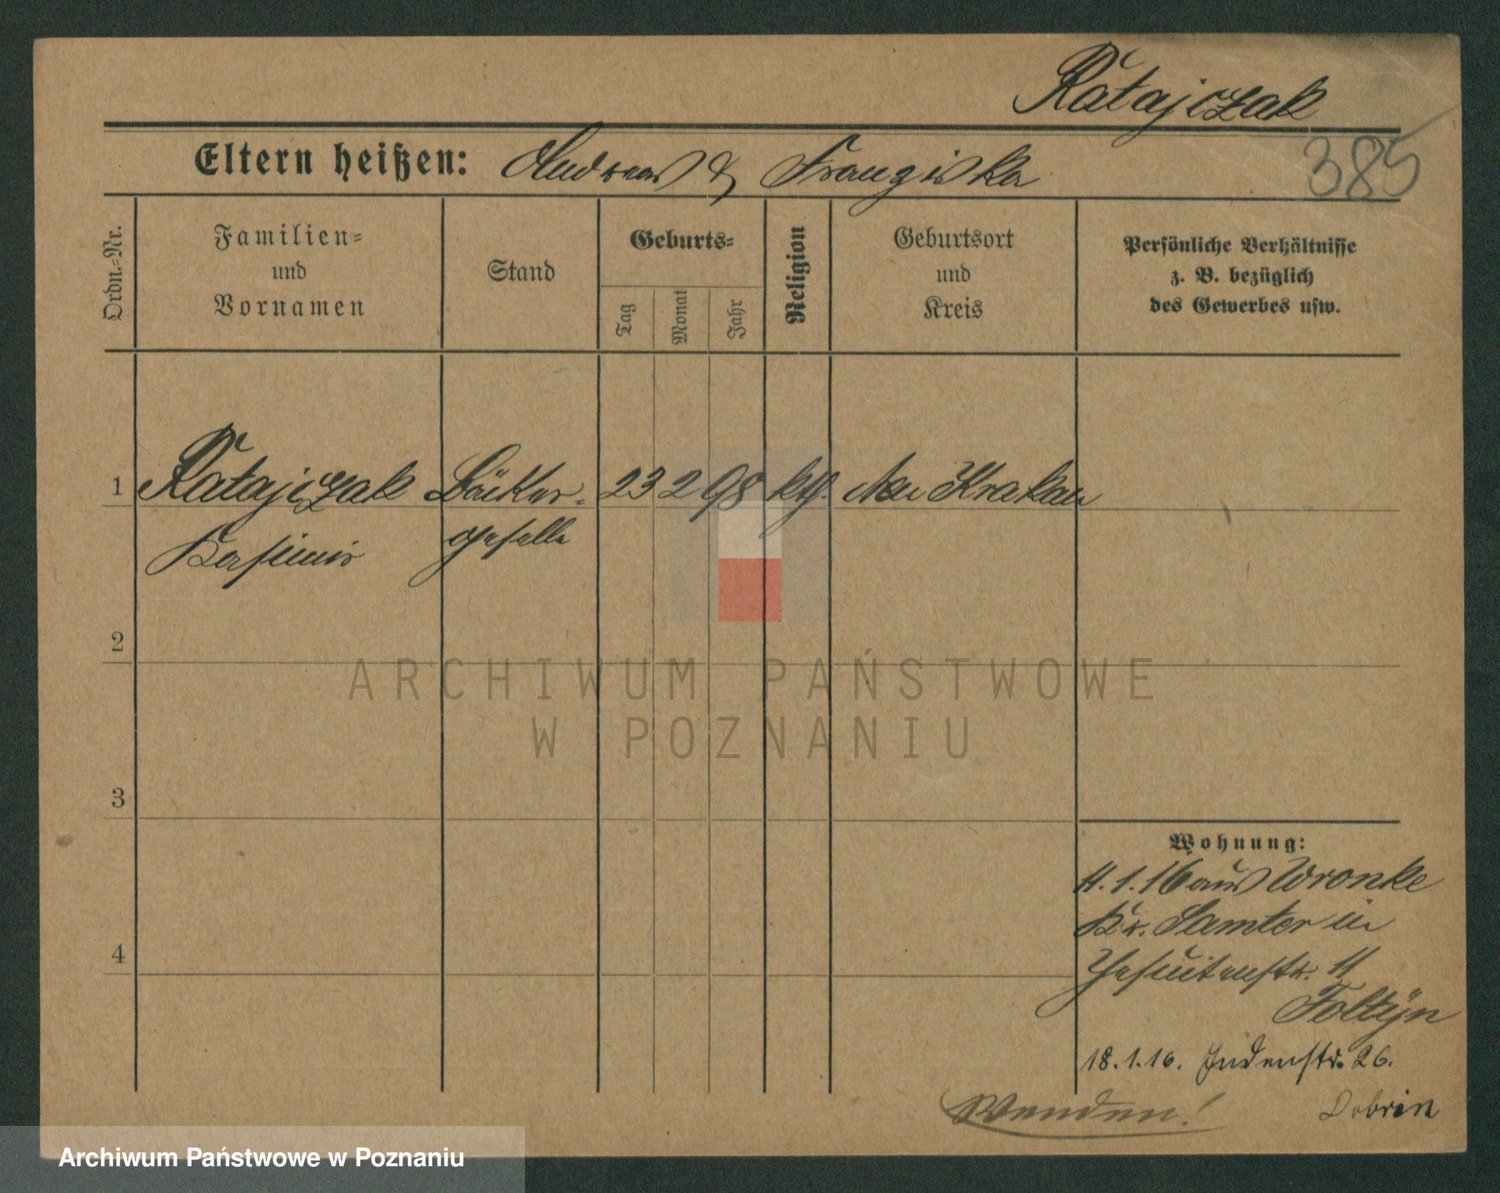 Ratajczak
385
Eltern heißen: Andreas & Franziska
Ordn.-Nr.
Familien-
und
Vornamen
Stand
Geburts-
Tag
Monat
Jahr
Religion
Geburtsort
und
Kreis
Persönliche Verhältnisse
z. B. bezüglich
des Gewerbes usw.
1 Ratajczak Bäcker- 23 2 98 kth. Neu Krakau
Kasimir geselle
2
3
4
ARCHIWUM PAŃSTWOWE
W POZNANIU
Wohnung:
11.1.16 aus Wronke
Kr. Samter in
Jesuitenstr. 11
Foltÿn
18.1.16. Judenstr. 26.
Dobrin
Wenden!
Archiwum Państwowe w Poznaniu